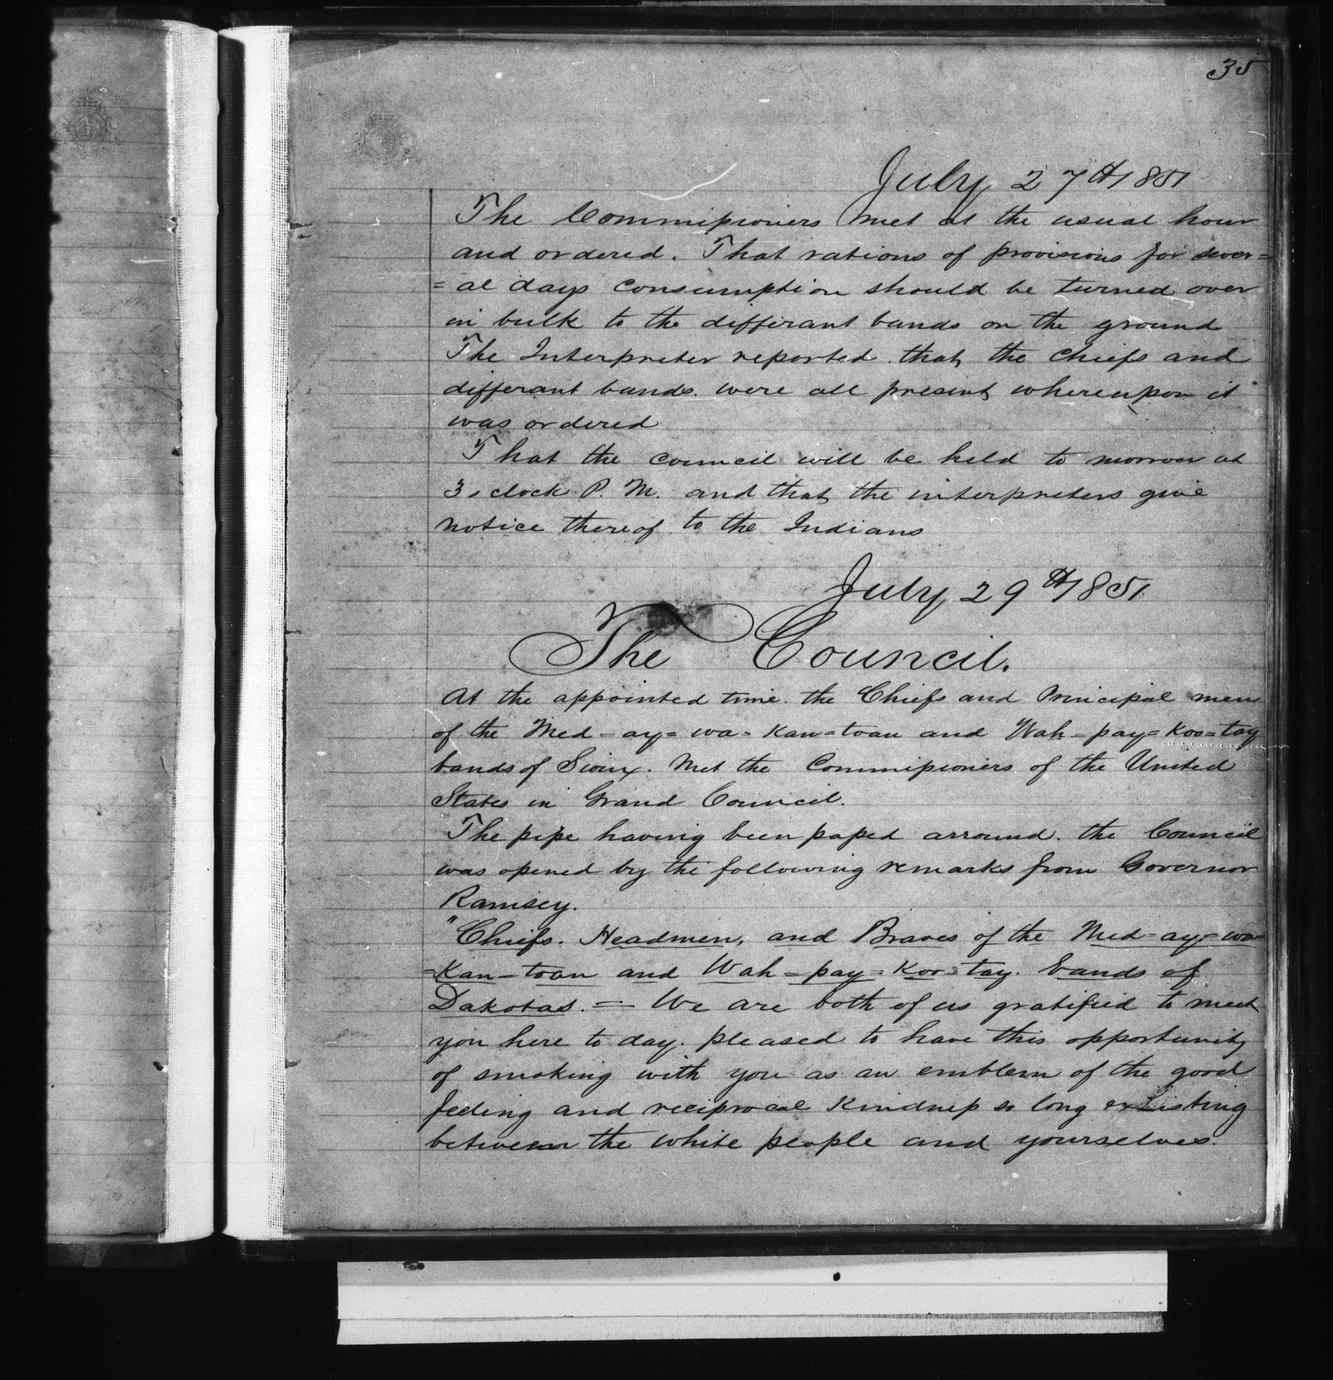 35
July 27th 1851
The Commissioners met at the usual hour
and ordered. That rations of provisions for sever=
=al days consumption should be turned over
in bulk to the differant bands on the ground
The Interpreter reported that the chiefs and
differant bands were all present whereupon it
was ordered
That the council will be held to morrow at
3 o clock P. M. and that the interpreters give
notice thereof to the Indians
July 29th 1851
The Council.
At the appointed time. the Chiefs and Principal men
of the Med=ay=wa=Kan=toan and Wah=pay=Koo=tay
bands of Sioux. Met the Commissioners of the United
States in Grand Council.
The pipe having been passed arround. the Council
was opened by the following remarks from Governor
Ramsey.
"Chiefs. Headmen, and Braves of the Med=ay=wa=
=Kan=toan and Wah=pay=Koo=tay. bands of
Dakotas. = We are both of us gratified to meet
you here to day. pleased to have this opportunity
of smoking with you as an emblem of the good
feeling and reciprocal Kindness so long existing
between the white people and yourselves.